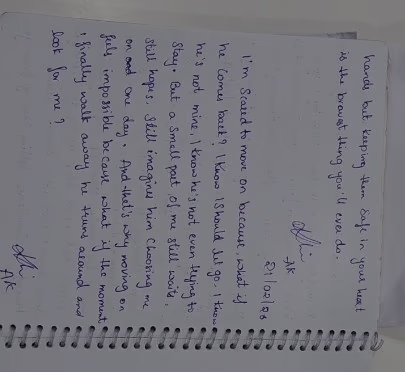 hands but keeping them safe in your heart
is the bravest thing you'll ever do.
AK
21/02/26
I'm scared to move on because, what if
he comes back? I know I should let go. I know
he's not mine, I know he's not even trying to
stay. But a small part of me still waits.
still hopes. Still imagines him choosing me
on one day. And that's why moving on
feels impossible because what if the moment
I finally walk away he turns around and
look for me?
AK